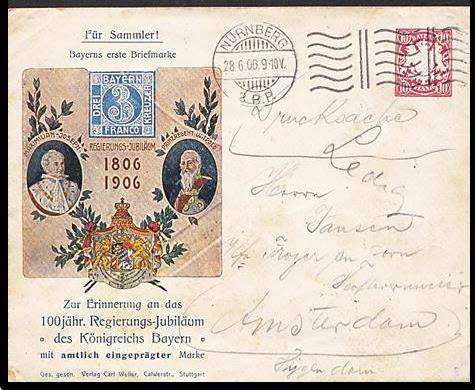 Für Sammler!
Bayerns erste Briefmarke
BAYERN
DREI
3
KREUZER
FRANCO
MAXIMILIAN-JOSEPH I
REGIERUNGS-JUBILÄUM
PRINZREGENT LUITPOLD
1806
1906
Zur Erinnerung an das
100jähr. Regierungs-Jubiläum
des Königreichs Bayern
mit amtlich eingeprägter Marke
Ges. gesch. Verlag Carl Weller, Calwerstr., Stuttgart
NÜRNBERG
28.6.06.9-10V.
2.B.P.
10 10
Drucksache
Ledig
Herrn
Jansen
p/a Roger
Amsterdam